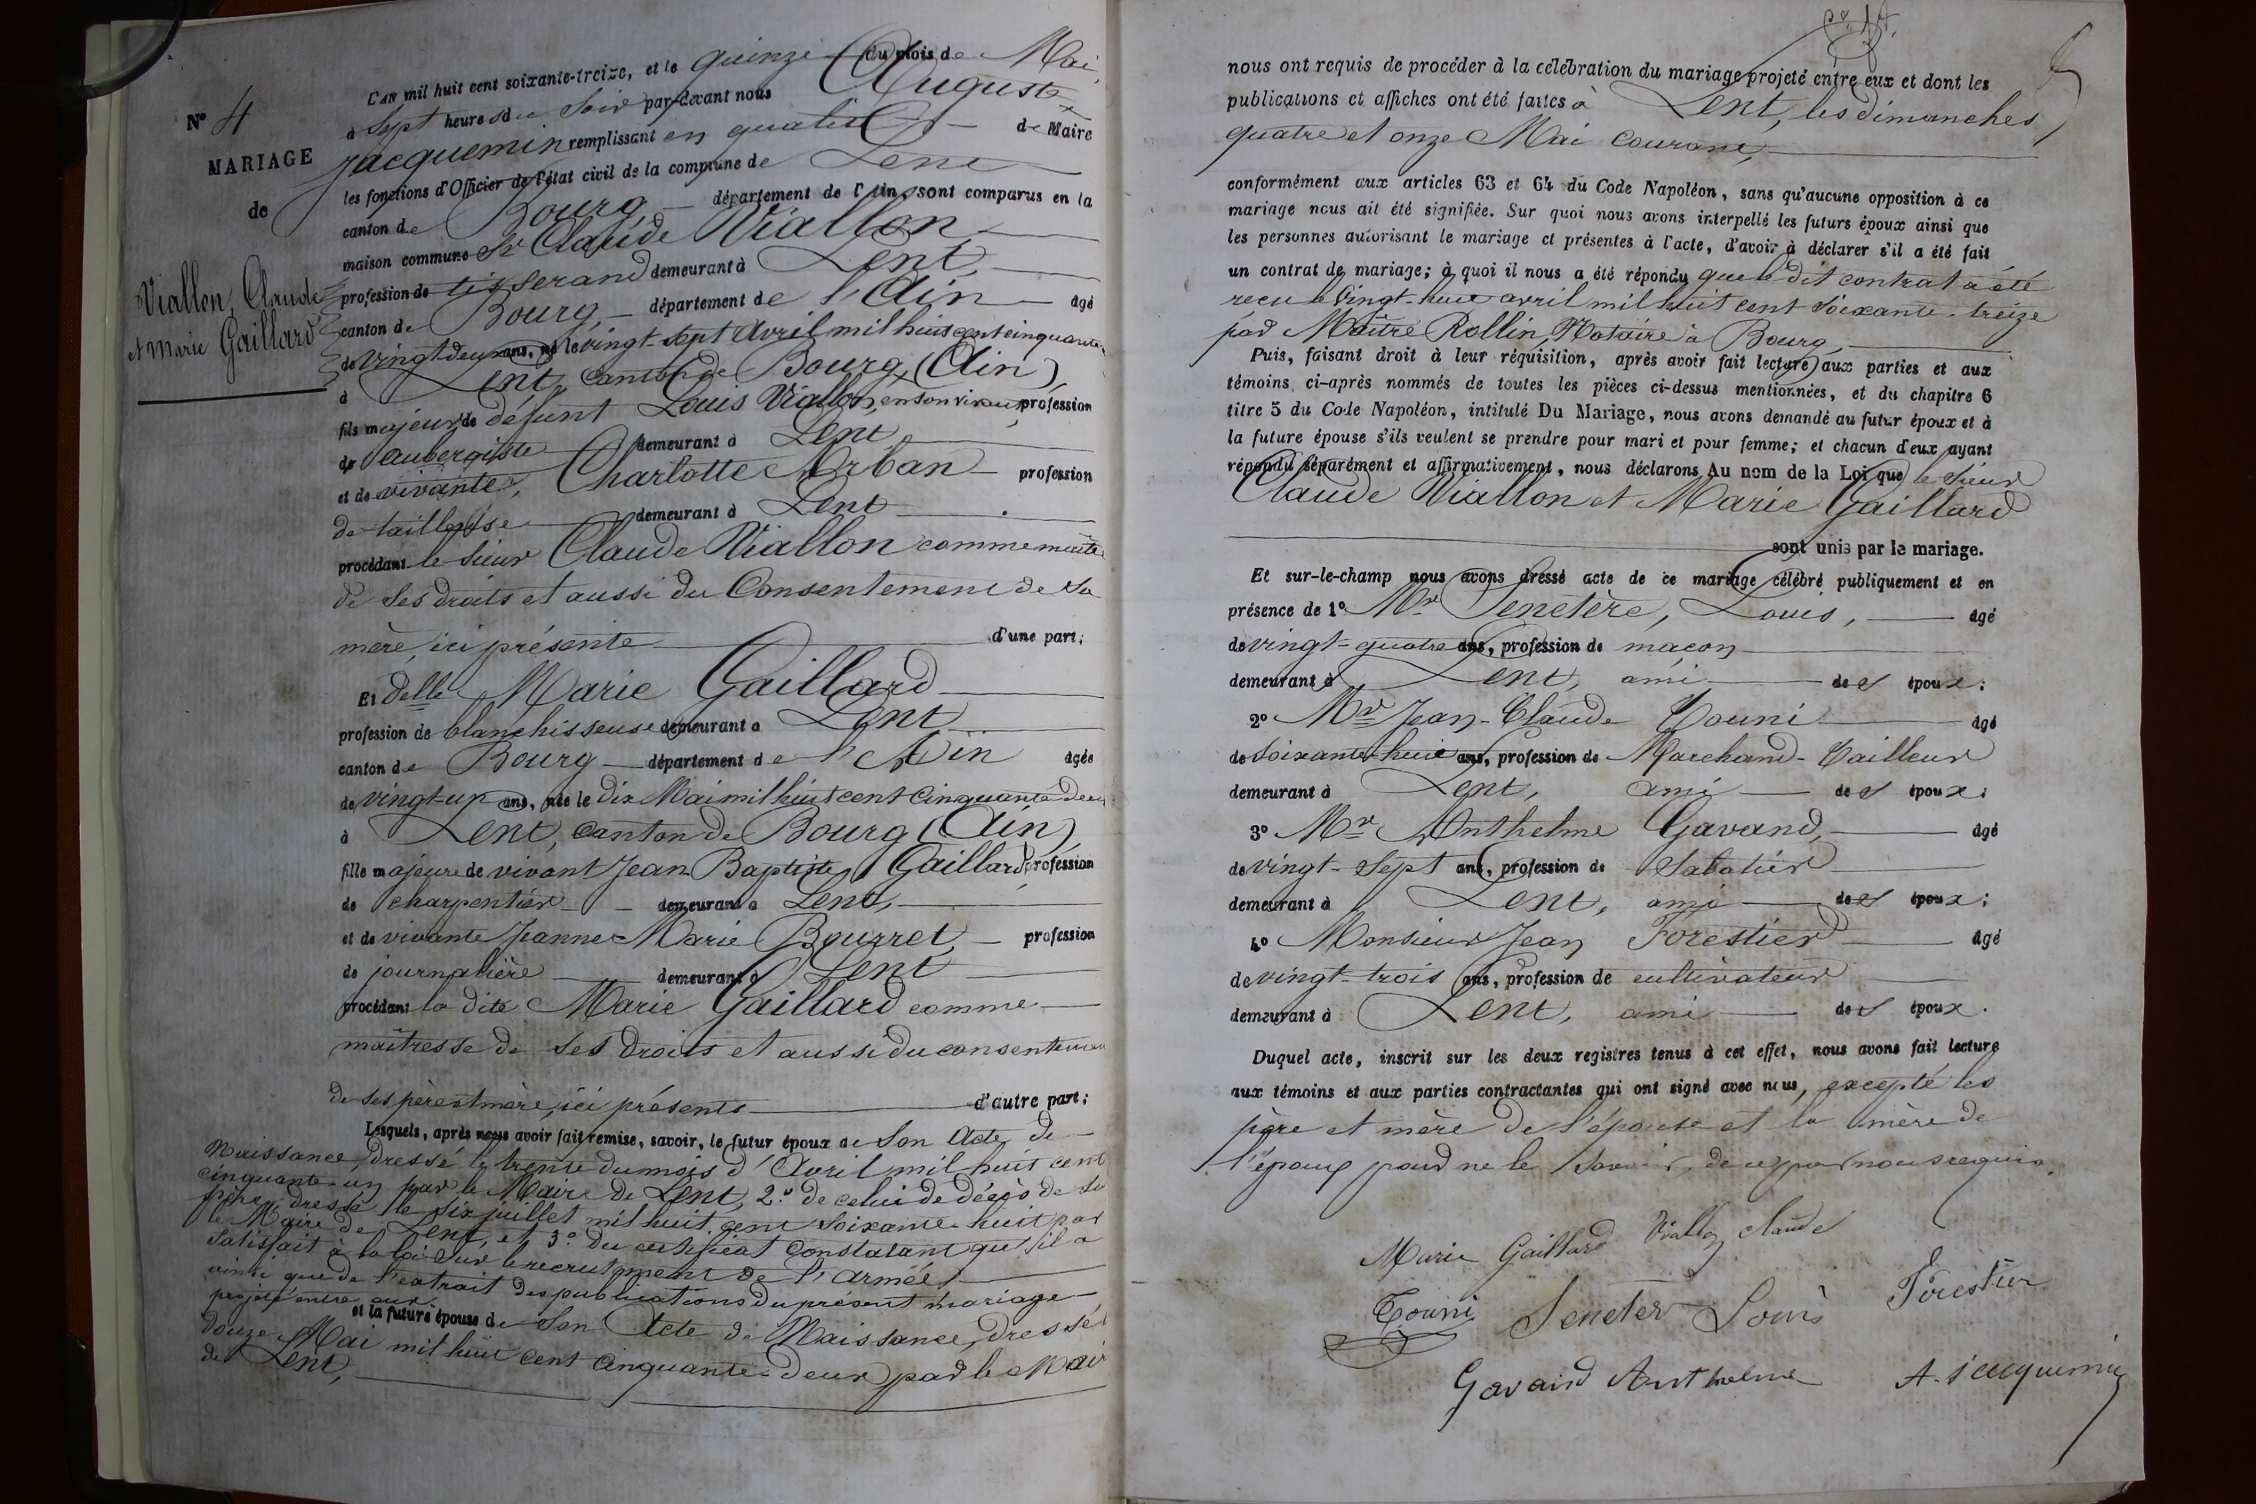 L'AN mil huit cent soixante-treize, et le quinze du mois de Mai,
N° 4
à Sept heures du Soir par-devant nous Auguste
MARIAGE
Jacquemin remplissant en qualité de Maire
de
les fonctions d'Officier de l'état civil de la commune de Lent
canton de Bourg, département de l'Ain, sont comparus en la
maison commune Sr Claude Viallon
profession de tisserand demeurant à Lent,
Viallon, Claude
et Marie Gaillard
canton de Bourg, département de l'Ain âgé
de vingt deux ans, né le vingt-sept Avril mil huit cent cinquante
à Lent, canton de Bourg, (Ain)
fils majeur de défunt Louis Viallon, en son vivant, profession
de aubergiste demeurant à Lent
et de vivante, Charlotte Arban profession
de tailleuse demeurant à Lent
procédant le sieur Claude Viallon comme maître
de ses droits et aussi du Consentement de sa
mère, ici présente d'une part;
Et Delle Marie Gaillard
profession de blanchisseuse demeurant à Lent
canton de Bourg département de l'Ain âgée
de vingt-un ans, née le dix Mai mil huit cent cinquante deux
à Lent, canton de Bourg (Ain)
fille majeure de vivant Jean Baptiste Gaillard profession
de charpentier demeurant à Lent,
et de vivante Jeanne Marie Bourret, profession
de journalière demeurant à Lent
procédant la dite Marie Gaillard comme
maîtresse de ses droits et aussi du consentement
de ses père et mère, ici présents d'autre part;
Lesquels, après nous avoir fait remise, savoir, le futur époux de Son Acte de
Naissance, dressé le trente du mois d'Avril mil huit cent
cinquante-un par le Maire de Lent, 2.° de celui de décès de Son
père, dressé le six juillet mil huit cent soixante huit par
le Maire de Lent, et 3.° du certificat constatant qu'il a
satisfait à la loi sur le recrutement de l'armée,
ainsi que de l'extrait des publications du présent mariage
projeté entre eux
et la future épouse de Son Acte de Naissance, dressé
douze Mai mil huit cent cinquante-deux par le Maire
de Lent,
nous ont requis de procéder à la célébration du mariage projeté entre eux et dont les
publications et affiches ont été faites à Lent, les dimanches
quatre et onze Mai courant,
conformément aux articles 63 et 64 du Code Napoléon, sans qu'aucune opposition à ce
mariage nous ait été signifiée. Sur quoi nous avons interpellé les futurs époux ainsi que
les personnes autorisant le mariage et présentes à l'acte, d'avoir à déclarer s'il a été fait
un contrat de mariage; à quoi il nous a été répondu que le dit contrat a été
reçu le vingt-huit avril mil huit cent soixante-treize
par Maître Rollin, Notaire à Bourg,
Puis, faisant droit à leur réquisition, après avoir fait lecture aux parties et aux
témoins ci-après nommés de toutes les pièces ci-dessus mentionnées, et du chapitre 6
titre 5 du Code Napoléon, intitulé Du Mariage, nous avons demandé au futur époux et à
la future épouse s'ils veulent se prendre pour mari et pour femme; et chacun d'eux ayant
répondu séparément et affirmativement, nous déclarons Au nom de la Loi que le Sieur
Claude Viallon et Marie Gaillard
sont unis par le mariage.
Et sur-le-champ nous avons dressé acte de ce mariage célébré publiquement et en
présence de 1° Mr Senetère, Louis, âgé
de vingt-quatre ans, profession de maçon
demeurant à Lent, ami des époux;
2° Mr Jean-Claude Touni âgé
de soixante-huit ans, profession de Marchand-Tailleur
demeurant à Lent, ami des époux;
3° Mr Anthelme Gavand, âgé
de vingt-sept ans, profession de Sabotier
demeurant à Lent, ami des époux;
4° Monsieur Jean Forestier âgé
de vingt-trois ans, profession de cultivateur
demeurant à Lent, ami des époux.
Duquel acte, inscrit sur les deux registres tenus à cet effet, nous avons fait lecture
aux témoins et aux parties contractantes qui ont signé avec nous, excepté les
père et mère de l'épouse et la mère de
l'époux pour ne le savoir, de ce par nous requis.
Marie Gaillard Viallon claude
Touni Seneter Louis Forestier
Gavand Anthelme A. Jacquemin